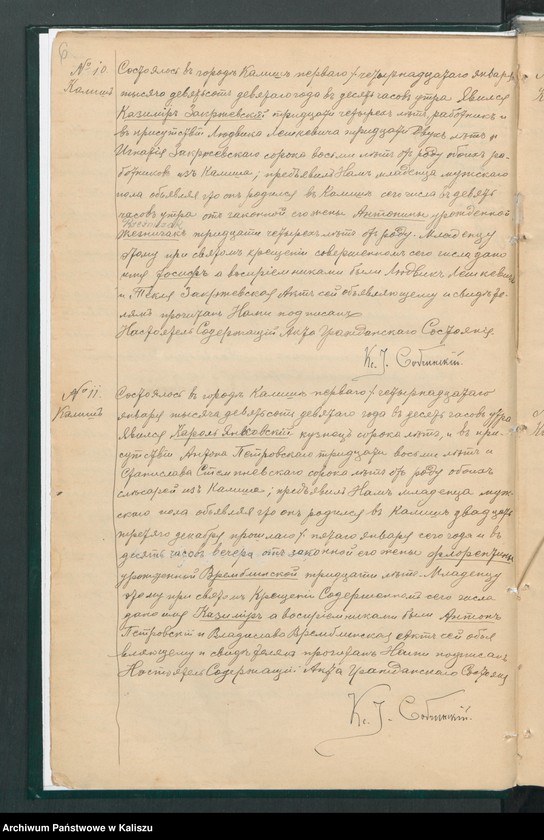 6
№ 10
Калишъ
Состоялось въ городѣ Калишѣ перваго /четырнадцатаго января
тысяча девятьсотъ девятаго года въ десять часовъ утра. Явился
Казиміръ Закржевскій тридцати четырехъ лѣтъ, работникъ и
въ присутствіи Людвика Лешкевича тридцати двухъ лѣтъ и
Игнатія Закржевскаго сорока восьми лѣтъ отъ роду обоихъ ра-
ботниковъ изъ Калиша; предъявилъ Намъ младенца мужскаго
пола объявляя что онъ родился въ Калишѣ сего числа въ девять
часовъ утра отъ законной его жены Антонины урожденной
тридцати четырехъ лѣтъ отъ роду. Младенцу
этому при святомъ крещеніи совершенномъ сего числа дано
имя Іосифъ а воспріемниками были Людвикъ Лешкевичъ
и Текля Закржевская Актъ сей объявляющему и свидѣте-
лямъ прочитанъ Нами подписанъ
Настоятель Содержащій Акта Гражданскаго Состоянія
Кс. J. Собчинскій.
№ 11.
Калишъ
Состоялось въ городѣ Калишѣ перваго /четырнадцатаго
января тысяча девятьсотъ девятаго года въ десять часовъ утра
Явился Кароль Янковскій кузнецъ сорока лѣтъ, и въ при-
сутствіи Антона Петровскаго тридцати восьми лѣтъ и
Станислава сорока лѣтъ отъ роду обоихъ
слесарей изъ Калиша; предъявилъ Намъ младенца муж-
скаго пола объявляя что онъ родился въ Калишѣ двадцать
третяго декабря прошлаго / пятаго января сего года и въ
десять часовъ вечера отъ законной его жены Флорентины
урожденной Врембинской тридцати лѣтъ. Младенцу
этому при святомъ Крещеніи Совершенномъ сего числа
дано имя Казиміръ а воспріемниками были Антонъ
Петровскій и Владислава Врембинская Актъ сей объя
вляющему и свидѣтелямъ прочитанъ Нами подписанъ
Настоятель Содержащій Акта Гражданскаго Состоянія
Кс. J. Собчинскій.
Archiwum Państwowe w Kaliszu